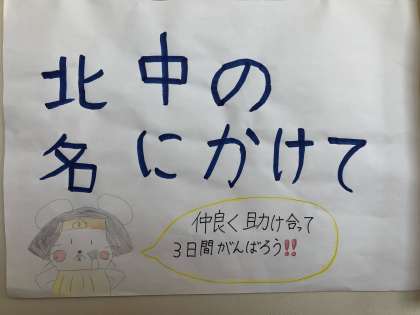 北中の
名にかけて
仲良く助け合って
3日間がんばろう!!